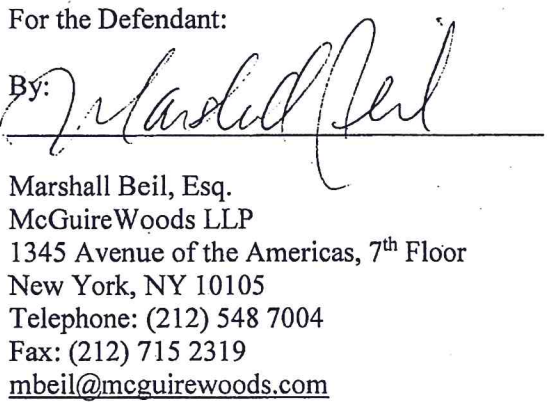 For the Defendant:
By: Marshall Beil
Marshall Beil, Esq.
McGuireWoods LLP
1345 Avenue of the Americas, 7th Floor
New York, NY 10105
Telephone: (212) 548 7004
Fax: (212) 715 2319
mbeil@mcguirewoods.com